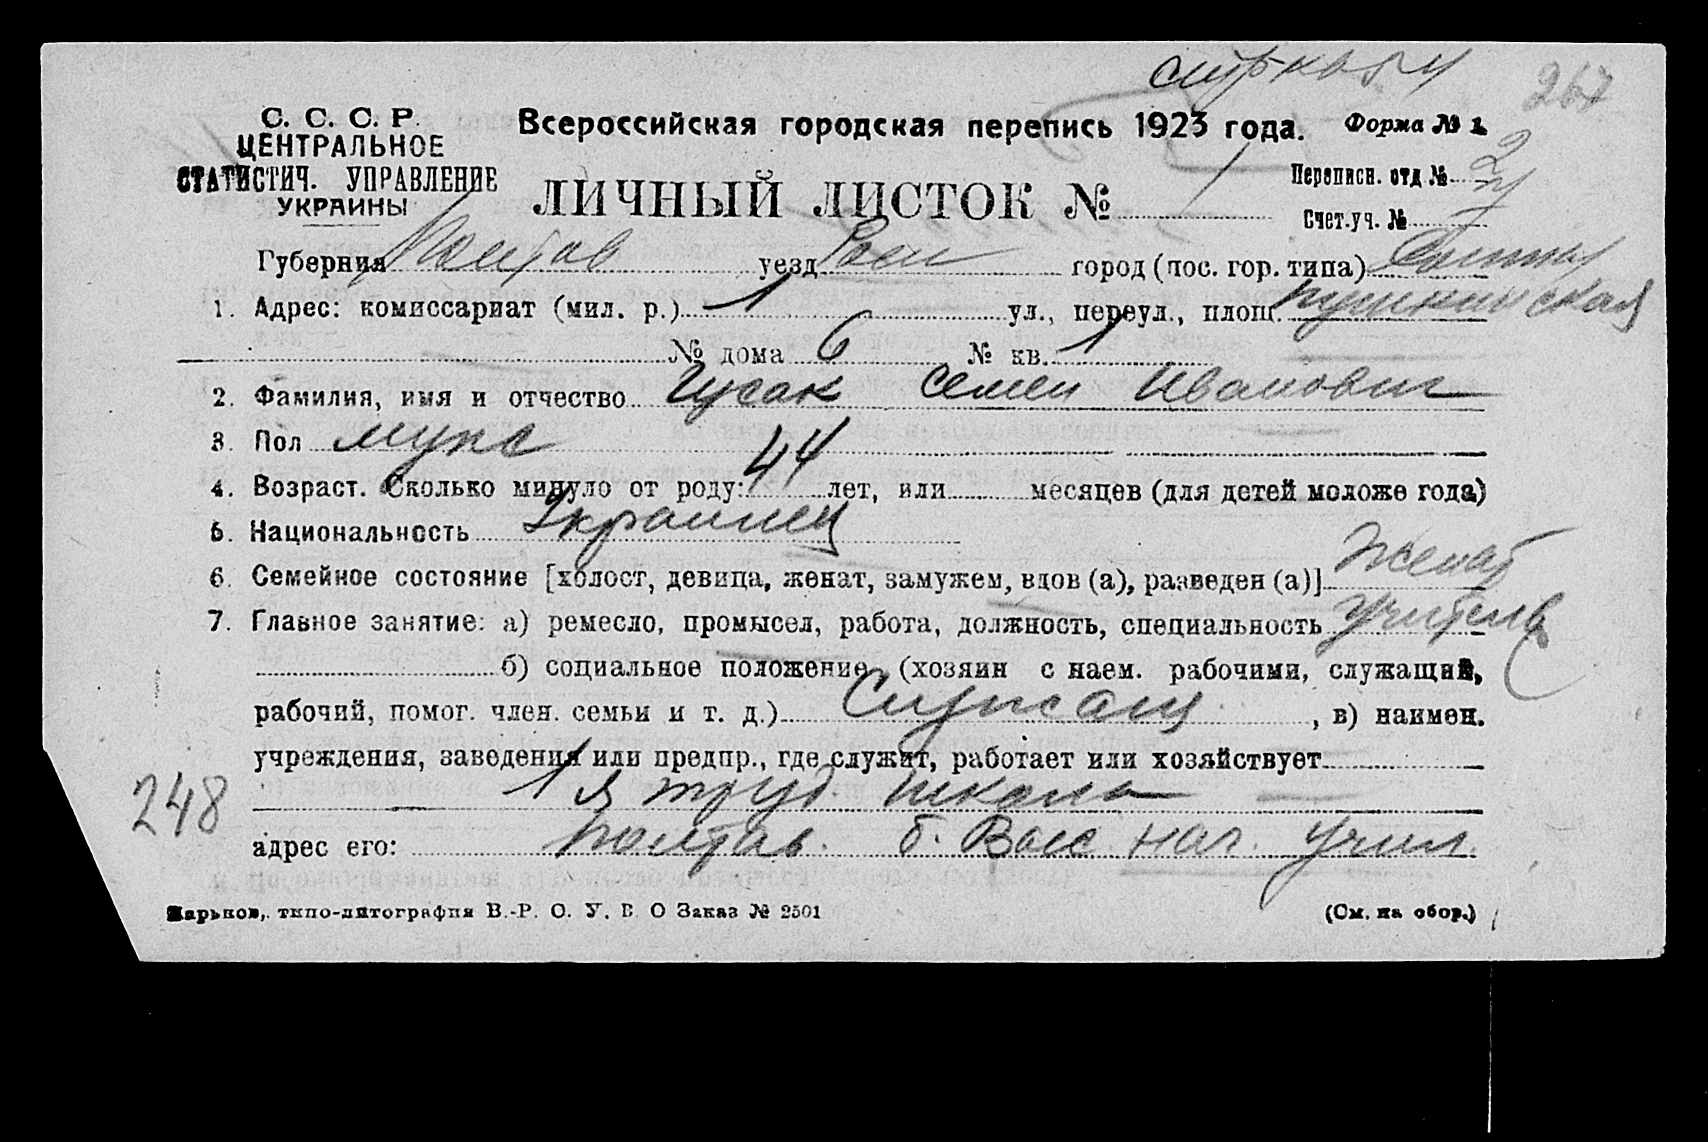 267
С. С. С. Р.
ЦЕНТРАЛЬНОЕ
СТАТИСТИЧ. УПРАВЛЕНИЕ
УКРАИНЫ
Всероссийская городская перепись 1923 года. Форма № 1.
ЛИЧНЫЙ ЛИСТОК № 1
Переписн. отд № 2
Счет.уч. №
Губерния Полтав уезд город (пос. гор. типа)
1. Адрес: комиссариат (мил. р.) 1 ул., переул., площ. Пушкинская
№ дома 6 № кв. 1
2. Фамилия, имя и отчество Гусак Семен Иванович
3. Пол мужс
4. Возраст. Сколько минуло от роду: 44 лет, или месяцев (для детей моложе года)
5. Национальность Украинец
6. Семейное состояние [холост, девица, женат, замужем, вдов (а), разведен (а)] Женат
7. Главное занятие: а) ремесло, промысел, работа, должность, специальность учитель
б) социальное положение (хозяин с наем. рабочими, служащий,
рабочий, помог. член. семьи и т. д.) Служащ , в) наимен.
учреждения, заведения или предпр., где служит, работает или хозяйствует
1 я труд школа
248
адрес его: Полтав. б. нач. учил.
Харьков, типо-литография В.-Р. О. У. В О Заказ № 2501 (См. на обор.)